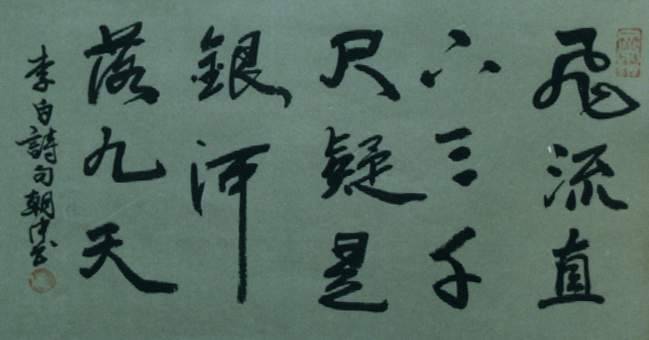 飛流直
下三千
尺疑是
銀河
落九天
李白詩句朝